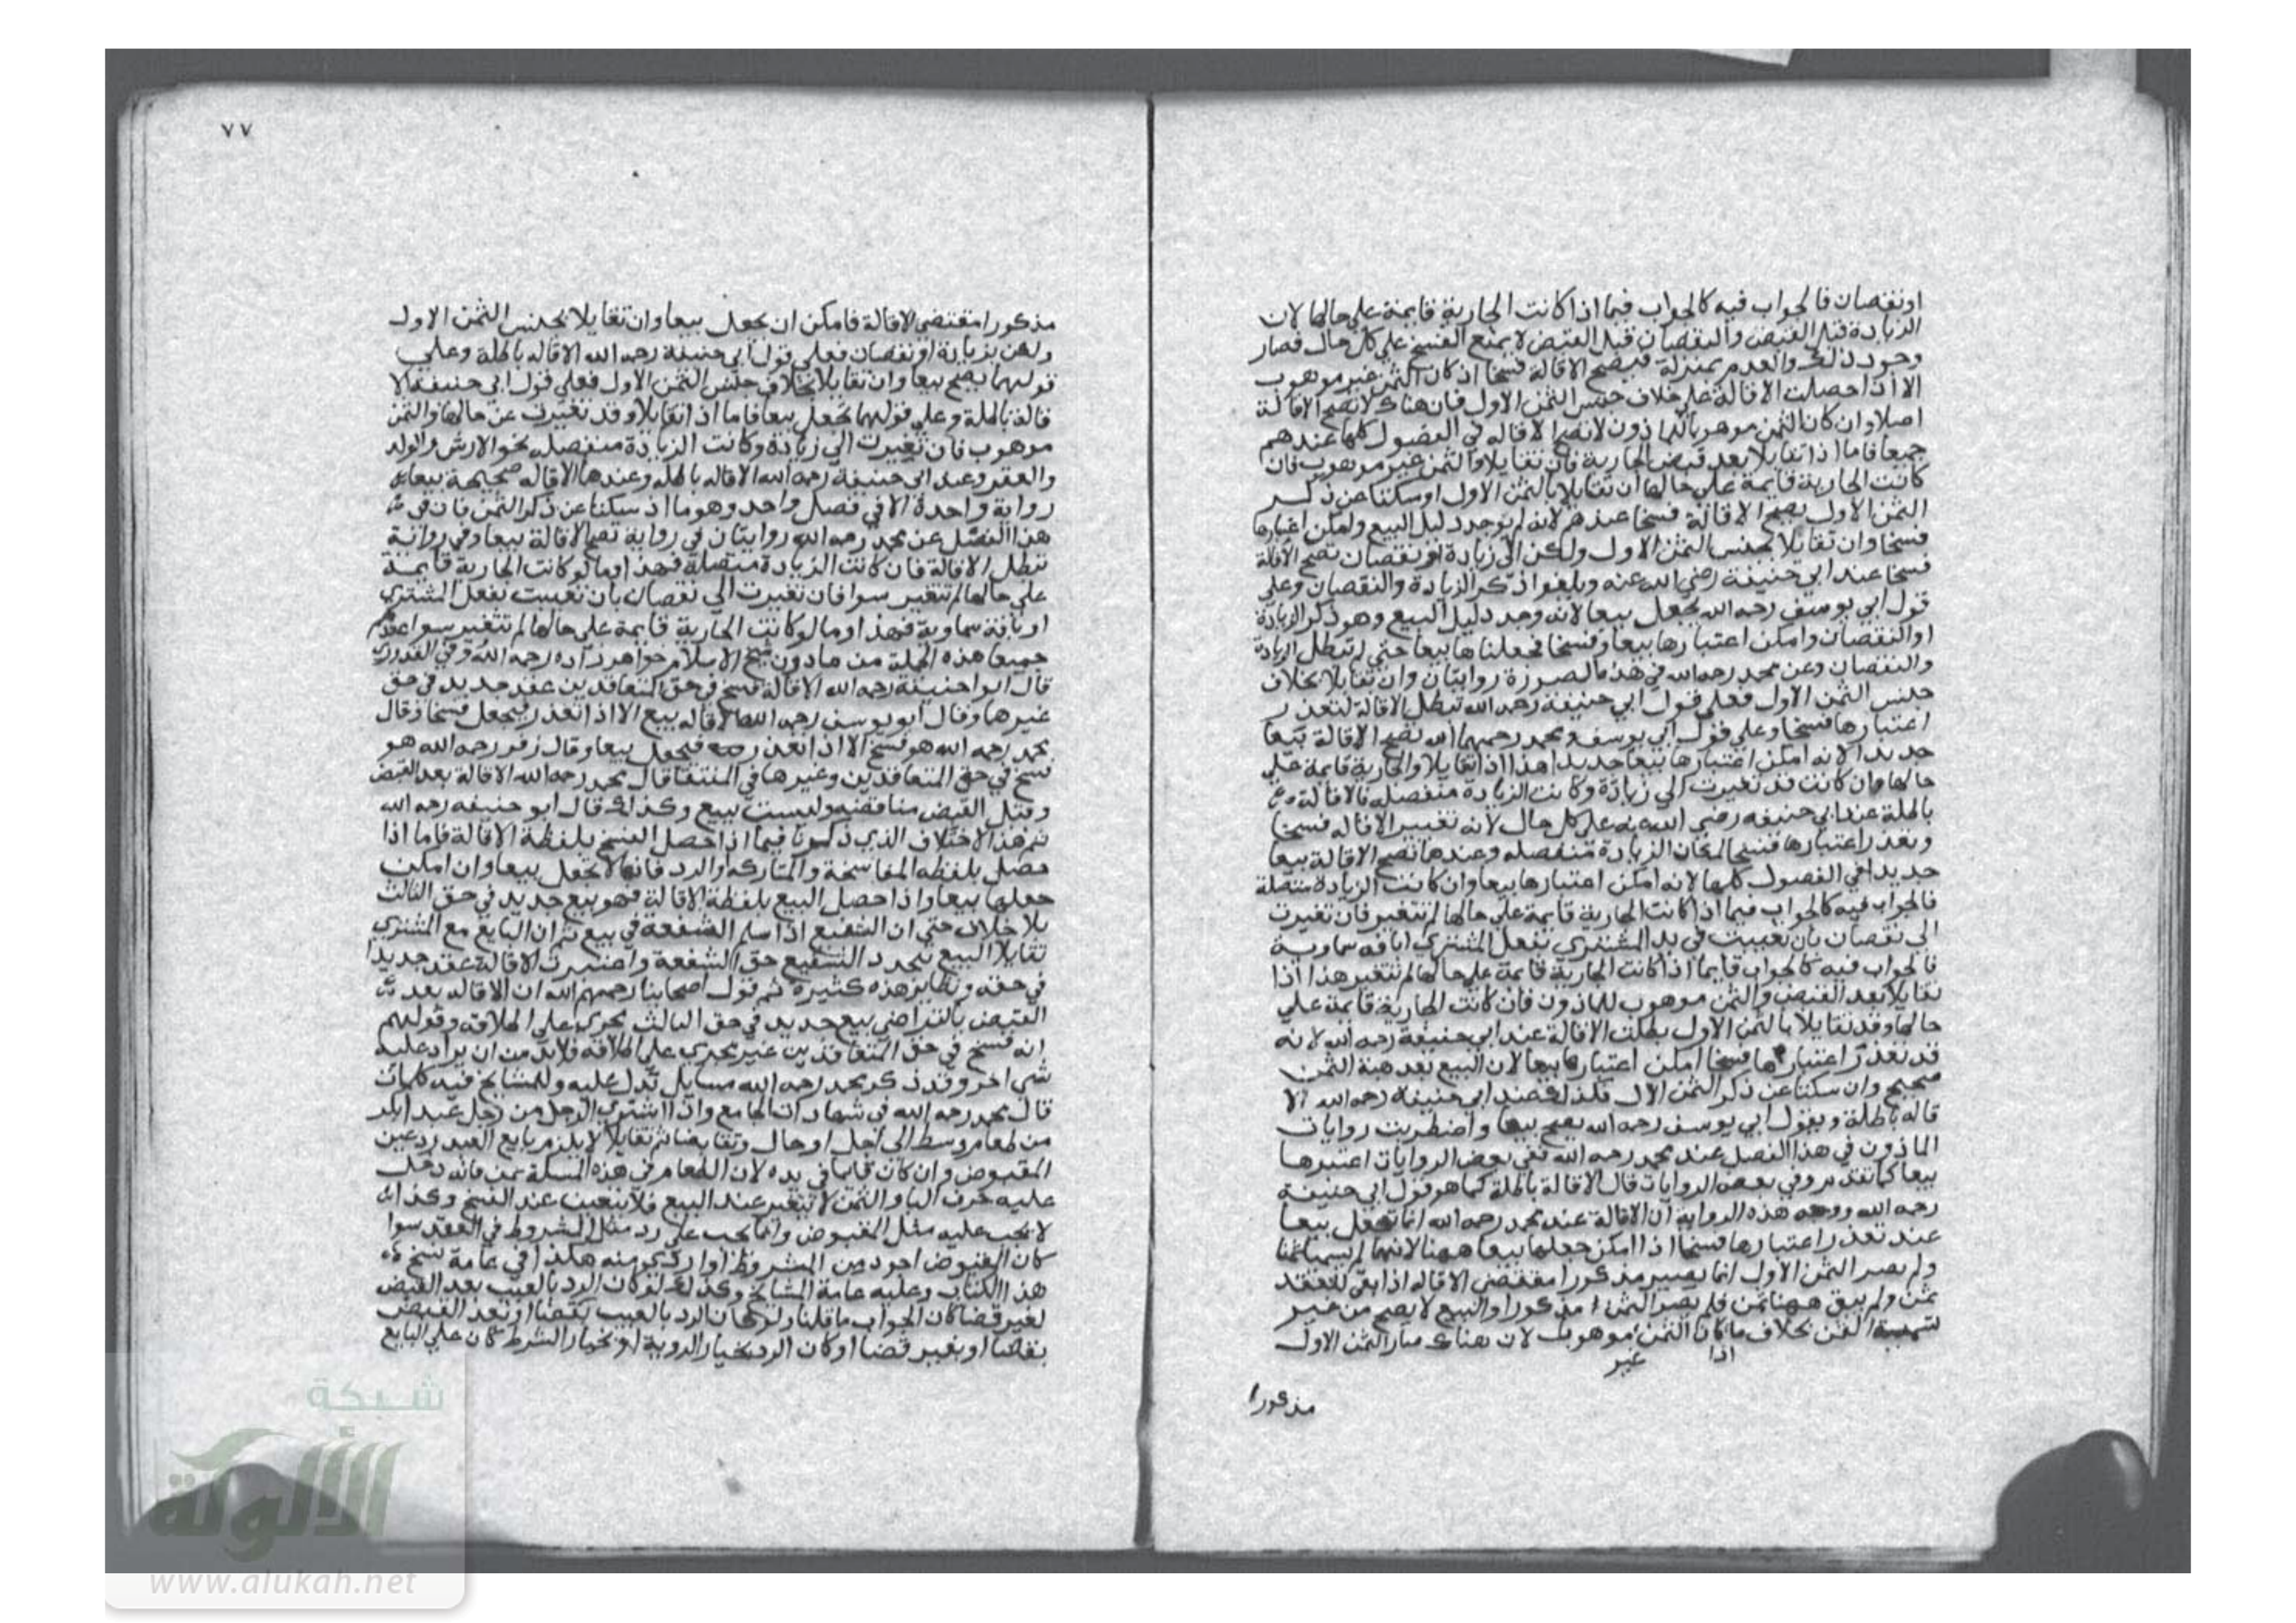 او نقصان فالجواب فيه كالجواب فيما اذا كانت الجارية قايمة علي حالها لان
الزيادة قبل القبض والنقصان قبل القبض لا يمنع الفسخ علي كل حال فصار
وجود ذلك والعدم بمنزلة فيصح الاقالة فسخا اذ كان الثمن غير موهوب
الا اذا حصلت الاقالة علي خلاف جنس الثمن الاول فان هناك لا تصح الاقالة
اصلا وان كان الثمن موهوبا للماذون لا تصح الاقاله في الفصول كلها عندهم
جميعا فاما اذا تقايلا بعد قبض الجارية فان تقايلا والثمن غير موهوب فان
كانت الجارية قايمة علي حالها ان تقايلا بالثمن الاول او سكتا عن ذكر
الثمن الاول يصح الاقالة فسخا عندهم لانه لم يوجد دليل البيع وامكن اعتبارها
فسخا وان تقايلا بجنس الثمن الاول ولكن الي زيادة او نقصان تصح الاقالة
فسخا عند ابي حنيفة رضي الله عنه ويلغوا ذكر الزيادة والنقصان وعلي
قول ابي يوسف رحمه الله يجعل بيعا لانه وجد دليل البيع وهو ذكر الزيادة
او النقصان وامكن اعتبارها بيعا وفسخا فجعلناها بيعا حتي لا تبطل الزيادة
والنقصان وعن محمد رحمه الله في هذه الصورة روايتان وان تقايلا بخلاف
جنس الثمن الاول فعلي قول ابي حنيفة رحمه الله تبطل الاقالة لتعذر
اعتبارها فسخا وعلي قول ابي يوسف ومحمد رحمهما الله تصح الاقالة بيعا
جديدا لانه امكن اعتبارها بيعا جديدا هذا اذا تقايلا والجارية قايمة علي
حالها وان كانت قد تغيرت الي زيادة وكانت الزيادة منفصلة فالاقالة
باطلة عند ابي حنيفه رضي الله عنه علي كل حال لانه تغيير الاقاله فسخا
وتعذر اعتبارها فسخا لمكان الزيادة منفصله وعندهما تصح الاقالة بيعا
جديدا في الفصول كلها لانه امكن اعتبارها بيعا وان كانت الزيادة متصلة
فالجواب فيه كالجواب فيما اذا كانت الجارية قايمة علي حالها لم تتغير فان تغيرت
الي نقصان بان تعيبت في يد المشتري بفعل المشتري او بافه سماوية
فالجواب فيه كالجواب فيما اذا كانت الجارية قايمة علي حالها لم تتغير هذا اذا
تقايلا بعد القبض والثمن موهوب للماذون فان كانت الجارية قايمة علي
حالها وقد تقايلا بالثمن الاول بطلت الاقالة عند ابي حنيفة رحمه الله لانه
قد تعذر اعتبارها فسخا امكن اعتبارها بيعا لان البيع بعد هبة الثمن
صحيح وان سكتا عن ذكر الثمن الاول فكذلك فعند ابي حنيفة رحمه الله الا
قاله باطلة وبقول ابي يوسف رحمه الله يصح بيعا واضطربت روايات
الماذون في هذا الفصل عند محمد رحمه الله ففي بعض الروايات اعتبرها
بيعا كما تقدم وفي بعض الروايات قال الاقالة باطلة كما هو قول ابي حنيفة
رحمه الله ووجه هذه الرواية ان الاقالة عند محمد رحمه الله انما تجعل بيعا
عند تعذر اعتبارها فسخا اذا امكن جعلها بيعا ههنا لانهما لم يسميا ثمنا
ولم يصر الثمن الاول انما يصير مذكورا مقتضي الاقاله اذا بقي للعقد
ثمن ولم يبق ههنا ثمن فلم يصر الثمن مذكورا والبيع لا يصح من غير
تسمية الثمن بخلاف ما كان الثمن موهوبا لان هناك صار الثمن الاول
اذا غير
مذكورا
٧٧
مذكورا مقتضي الاقالة فامكن ان يجعل بيعا وان تقايلا بجنس الثمن الاول
ولكن بزيادة او نقصان فعلي قول ابي حنيفة رحمه الله الاقاله باطلة وعلي
قولهما يصح بيعا وان تقايلا بخلاف جنس الثمن الاول فعلي قول ابي حنيفة الا
قالة باطلة وعلي قولهما يجعل بيعا فاما اذا تقايلا وقد تغيرت عن حالها والثمن
موهوب فان تغيرت الي زيادة وكانت الزيادة منفصله نحو الارش والولد
والعقر وعند ابي حنيفة رحمه الله الاقاله باطله وعندهما الاقاله صحيحة بيعا
رواية واحدة الا في فصل واحد وهو ما اذ سكتا عن ذكر الثمن فان في
هذا الفصل عن محمد رحمه الله روايتان في رواية تصح الاقالة بيعا وفي رواية
تبطل الاقالة فان كانت الزيادة متصلة فهذا وما لو كانت الجارية قايمة
علي حالها لم تتغير سوا فان تغيرت الي نقصان بان تعيبت بفعل المشتري
او بافة سماوية فهذا وما لو كانت الجارية قايمة علي حالها لم تتغير سوا عندهم
جميعا هذه الجملة من ماذون شيخ الاسلام خواهر زاده رحمه الله وفي القدوري
قال ابوا حنيفة رحمه الله الاقالة فسخ في حق المتعاقدين عقد جديد في حق
غيرهما وقال ابو يوسف رحمه الله الاقاله بيع الا اذا تعذر فيجعل فسخا وقال
محمد رحمه الله هو فسخ الا اذا تعذر فيجعل بيعا وقال زفر رحمه الله هو
فسخ في حق المتعاقدين وغيرهما في المنتقا قال محمد رحمه الله الاقالة بعد القبض
وقبل القبض مناقضه وليست ببيع وكذلك قال ابو حنيفه رحمه الله
ثم هذا الاختلاف الذي ذكرنا فيما اذا حصل الفسخ بلفظة الاقالة فاما اذا
حصل بلفظه المفاسخة والمتاركه والرد فانها لا تجعل بيعا وان امكن
جعلها بيعا واذا حصل البيع بلفظة الاقالة فهو بيع جديد في حق الثالث
بلا خلاف حتي ان الشفيع اذا سلم الشفعة في بيع ثم ان البايع مع المشتري
تقايلا البيع يتجدد للشفيع حق الشفعة واعتبرت الاقالة عقد جديدا
في حقه ونظاير هذه كثيرة ثم قول اصحابنا رحمهم الله ان الاقاله بعد
القبض بالتراضي بيع جديد في حق الثالث يجري علي اطلاقه وقولهم
انه فسخ في حق المتعاقدين غير مجري علي اطلاقه فلابد من ان يزاد عليه
شي اخر وقد ذكر محمد رحمه الله مسايل تدل عليه وللمشايخ فيه كلمات
قال محمد رحمه الله في شهادات الجامع واذا اشتري الرجل من رجل عبدا بكر
من طعام وسط الي اجل او حال وتقابضا ثم تقايلا لا يلزم بايع العبد رد عين
المقبوض وان كان قايما في يده لان الطعام في هذه المسئلة ثمن فانه دخل
عليه حرف البا والثمن لا يتغير عند البيع فلا يتعين عند الفسخ وكذا
لا يجب عليه مثل المقبوض وانما يجب علي رد مثل المشروط في العقد سوا
كان المقبوض اجود من المشروط او اردي منه هكذا في عامة نسخ
هذا الكتاب وعليه عامة المشايخ وكذلك لو كان الرد بالعيب بعد القبض
لغير قضا كان الجواب ما قلنا ولو كان الرد بالعيب بقضا او بعد القبض
بقضا او بغير قضا او كان الرد بخيار الروية او بخيار الشرط كان علي البايع
شبكة
الألوكة
www.alukah.net